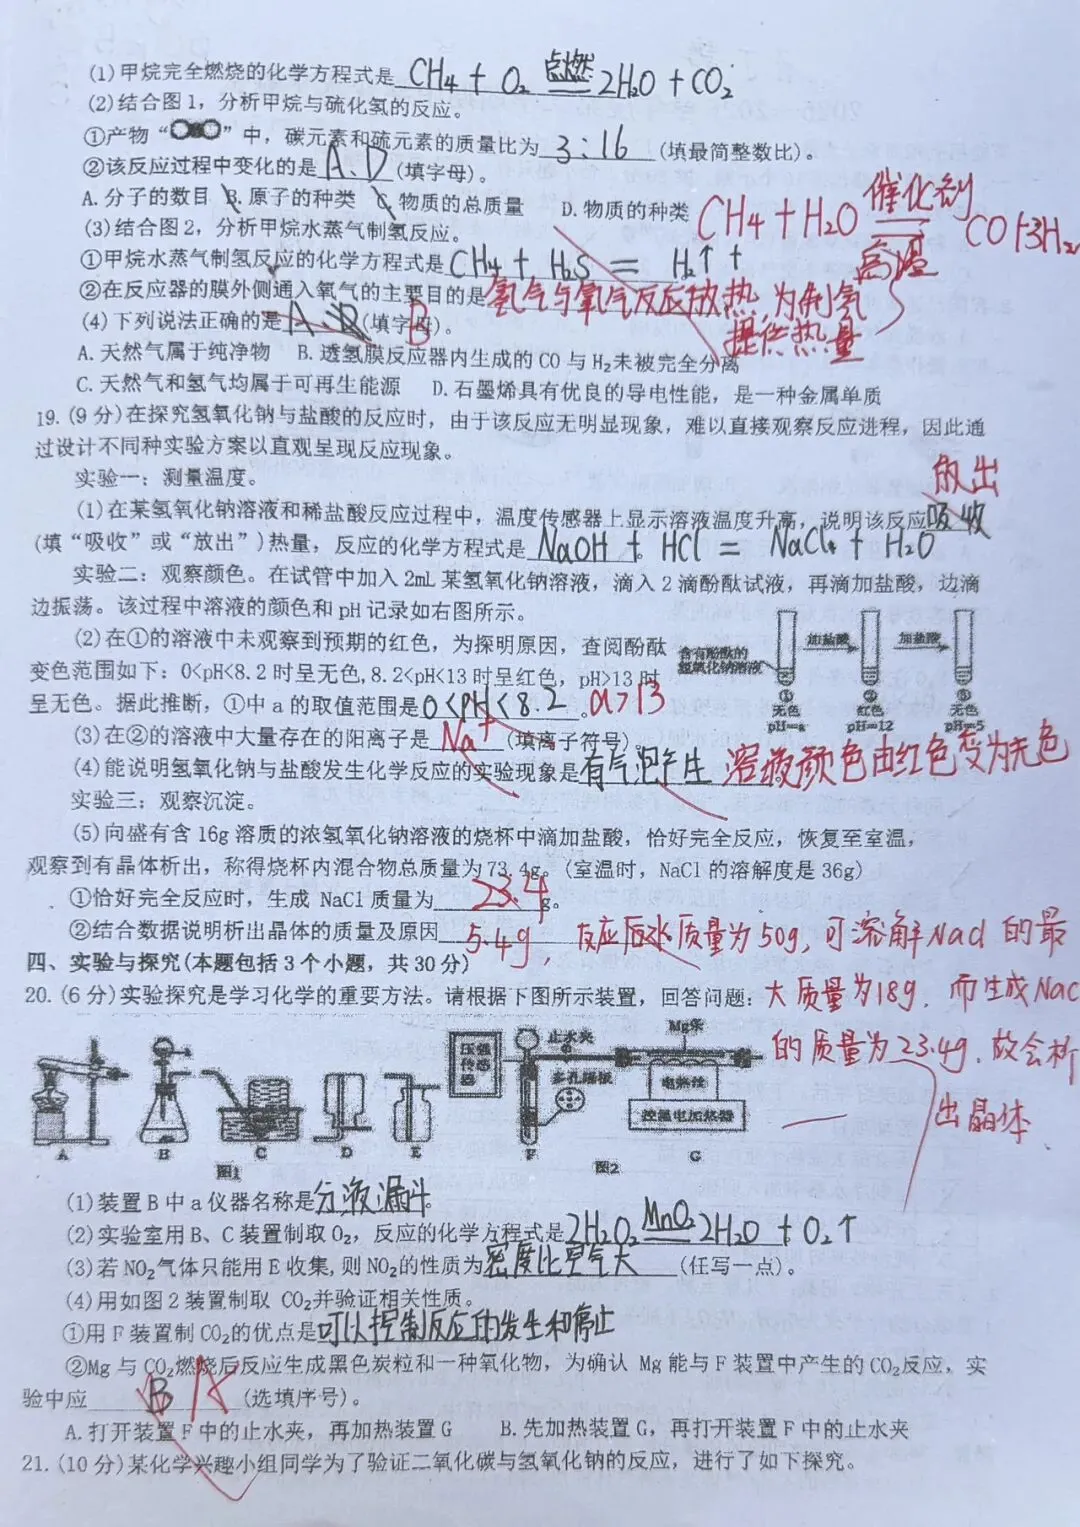 (1)甲烷完全燃烧的化学方程式是 CH₄ + O₂ 点燃 2H₂O + CO₂
(2)结合图1，分析甲烷与硫化氢的反应。
①产物“ ”中，碳元素和硫元素的质量比为 3:16 (填最简整数比)。
②该反应过程中变化的是 A、D (填字母)。
A.分子的数目 B.原子的种类 C.物质的总质量 D.物质的种类
CH₄ + H₂O 催化剂 高温 CO+3H₂
(3)结合图2，分析甲烷水蒸气制氢反应。
①甲烷水蒸气制氢反应的化学方程式是 CH₄ + H₂S = H₂↑ +
②在反应器的膜外侧通入氧气的主要目的是 氢气与氧气反应放热,为制氢
提供热量
(4)下列说法正确的是 A、B (填字母)。 B
A.天然气属于纯净物 B.透氢膜反应器内生成的CO与H₂未被完全分离
C.天然气和氢气均属于可再生能源 D.石墨烯具有优良的导电性能，是一种金属单质
19.(9分)在探究氢氧化钠与盐酸的反应时，由于该反应无明显现象，难以直接观察反应进程，因此通
过设计不同种实验方案以直观呈现反应现象。
实验一：测量温度。
放出
(1)在某氢氧化钠溶液和稀盐酸反应过程中，温度传感器上显示溶液温度升高，说明该反应 吸收
(填“吸收”或“放出”)热量，反应的化学方程式是 NaOH + HCl = NaCl + H₂O
实验二：观察颜色。在试管中加入2mL某氢氧化钠溶液，滴入2滴酚酞试液，再滴加盐酸，边滴
边振荡。该过程中溶液的颜色和pH记录如右图所示。
(2)在①的溶液中未观察到预期的红色，为探明原因，查阅酚酞
变色范围如下：0<pH<8.2时呈无色,8.2<pH<13时呈红色，pH>13时
呈无色。据此推断，①中a的取值范围是 0<pH<8.2 。 a>13
含有酚酞的
氢氧化钠溶液
加盐酸 加盐酸
① ② ③
无色 红色 无色
pH=a pH=12 pH=5
(3)在②的溶液中大量存在的阳离子是 Na⁺ (填离子符号)。
(4)能说明氢氧化钠与盐酸发生化学反应的实验现象是 有气泡产生 溶液颜色由红色变为无色
实验三：观察沉淀。
(5)向盛有含16g溶质的浓氢氧化钠溶液的烧杯中滴加盐酸，恰好完全反应，恢复至室温，
观察到有晶体析出，称得烧杯内混合物总质量为73.4g。(室温时，NaCl的溶解度是36g)
①恰好完全反应时，生成NaCl质量为 23.4 g。
②结合数据说明析出晶体的质量及原因 5.4g, 反应后水质量为50g,可溶解NaCl的最
大质量为18g. 而生成NaCl
的质量为23.4g.故会析
出晶体
四、实验与探究(本题包括3个小题，共30分)
20.(6分)实验探究是学习化学的重要方法。请根据下图所示装置，回答问题：
压强传感器 止水夹 多孔隔板 Mg条 电热丝 控温电加热器
A B C D E F G
图1 图2
(1)装置B中a仪器名称是 分液漏斗。
(2)实验室用B、C装置制取O₂，反应的化学方程式是 2H₂O₂ MnO₂ 2H₂O + O₂↑
(3)若NO₂气体只能用E收集,则NO₂的性质为 密度比空气大 (任写一点)。
(4)用如图2装置制取CO₂并验证相关性质。
①用F装置制CO₂的优点是 可以控制反应的发生和停止
②Mg与CO₂燃烧后反应生成黑色炭粒和一种氧化物，为确认Mg能与F装置中产生的CO₂反应，实
验中应 B A (选填序号)。
A.打开装置F中的止水夹，再加热装置G B.先加热装置G，再打开装置F中的止水夹
21.(10分)某化学兴趣小组同学为了验证二氧化碳与氢氧化钠的反应，进行了如下探究。